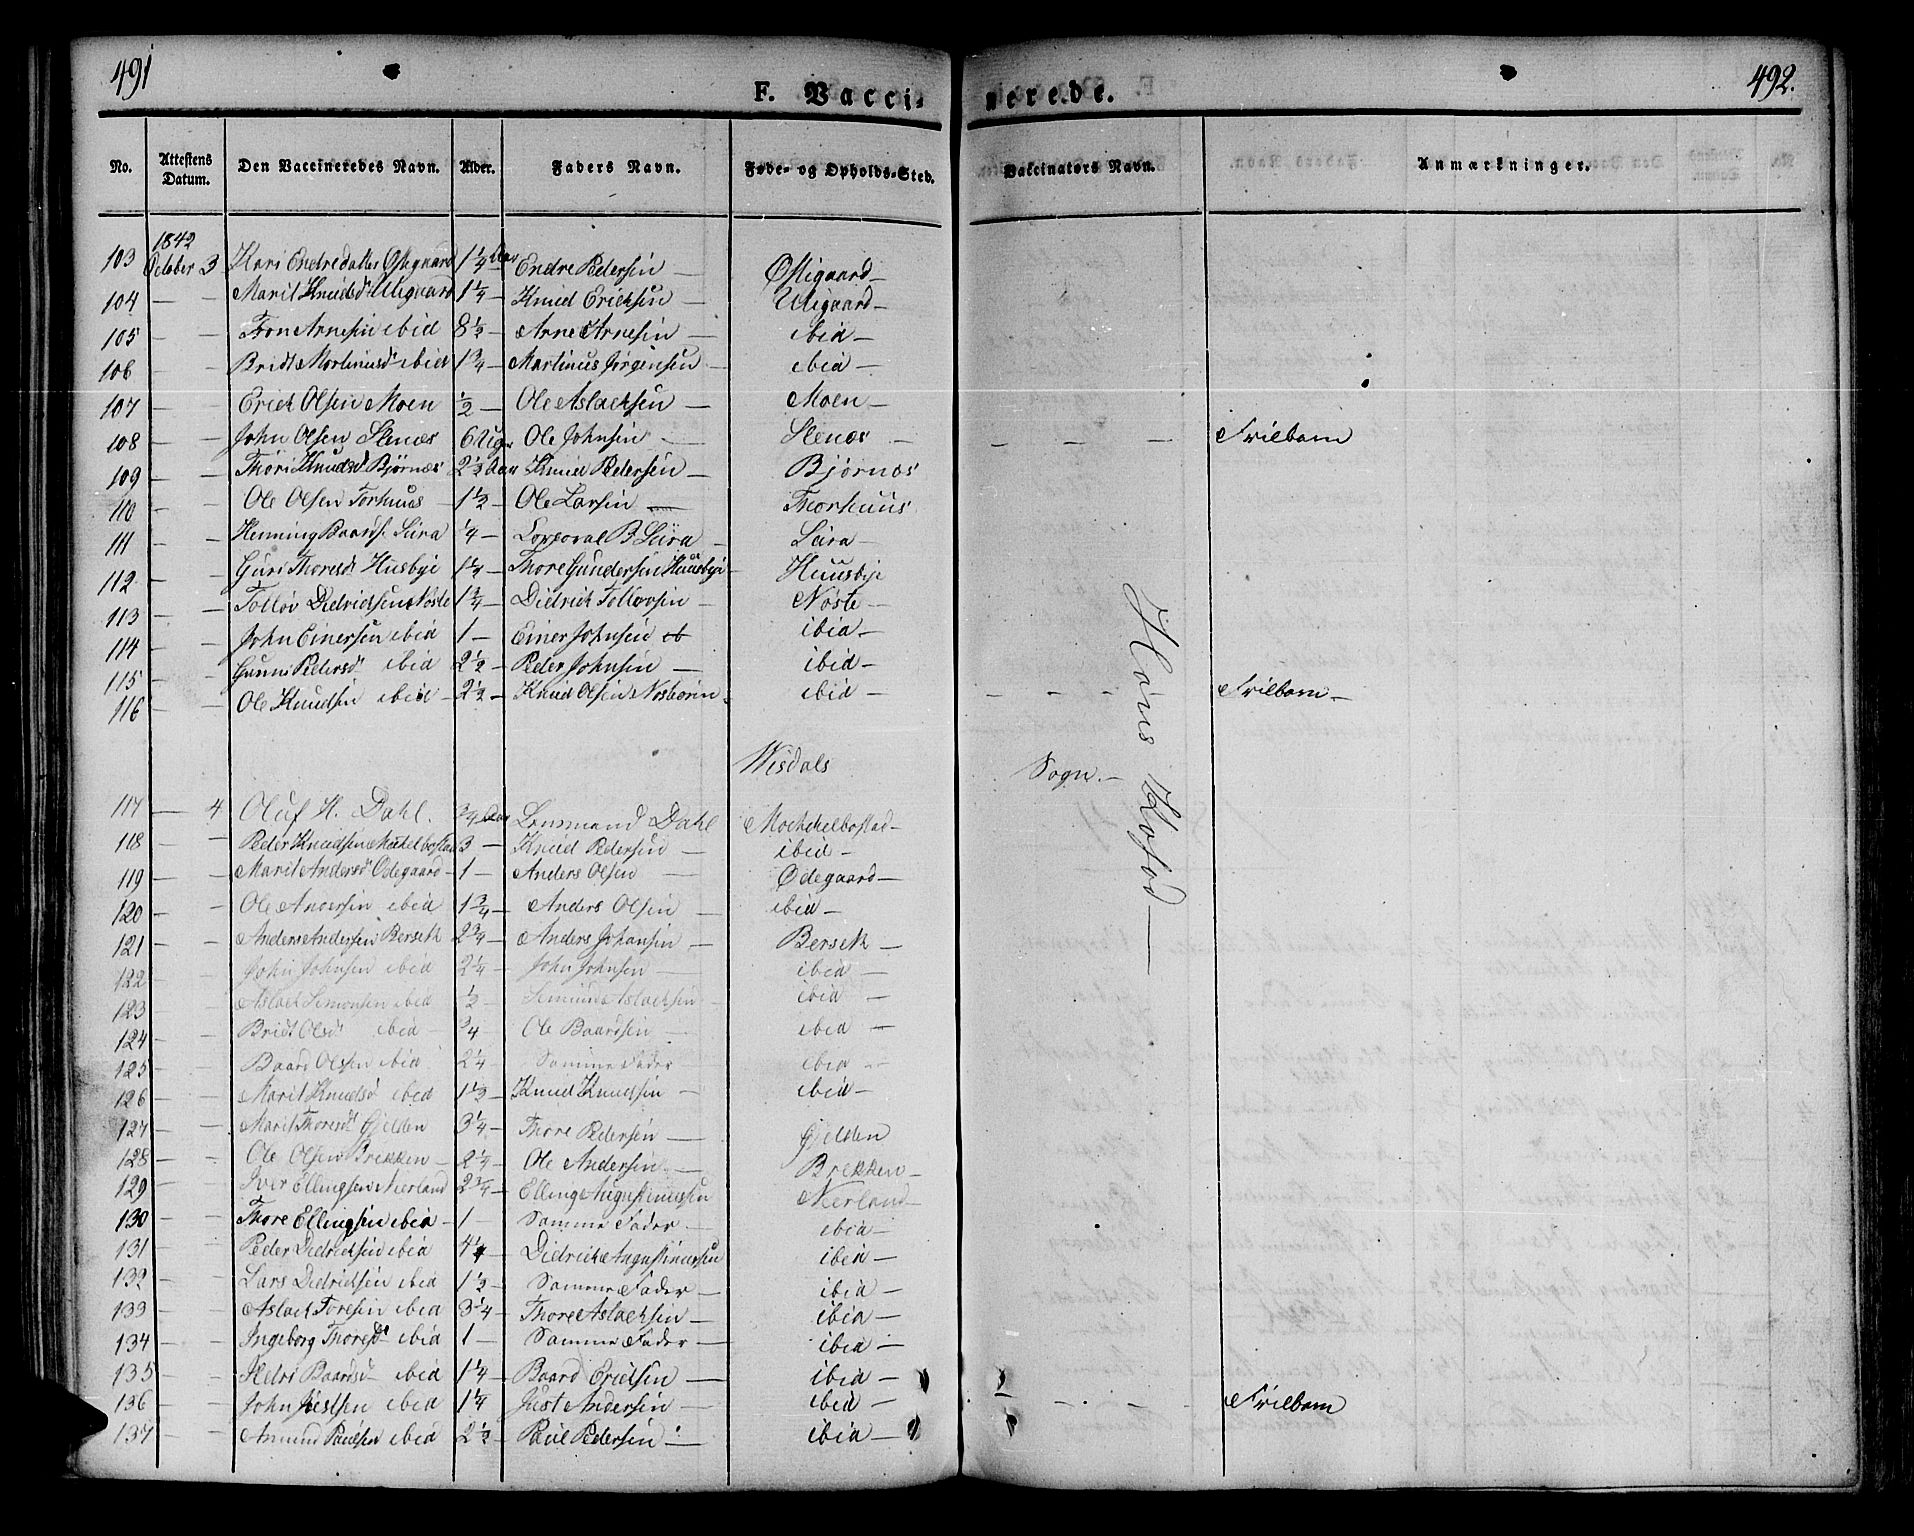 491
492.
F. Vacci-
nerede.
No. Attestens Datum. Den Vaccineredes Navn. Alder. Faders Navn. Føde- og Opholds-Sted. Vaccinators Navn. Anmærkninger.
1842
103 October 3 Kari Endredatter Østigaard 1 1/4 Aar Endre Pedersen — Østigaard —
104 — — Marit Knudsd Utigaard 1 1/4 — Knud Ericksen — Utigaard —
105 — — Tron Arnesen ibid 8 1/2 — Arne Arnesen — ibid —
106 — — Bridt Martinusd ibid 1 3/4 — Martinus Jørgensen — ibid —
107 — — Erick Olsen Moen 1/2 — Ole Aslachsen — Moen —
108 — — John Olsen Stenæs 6 Uger Ole Johnsen — Stenæs — — — — Frilbarn
109 — — Thøri Knudsd Bjørnæs 2 1/2 Aar Knud Pedersen — Bjørnæs
110 — — Ole Olsen Torhuus — 1 1/2 — Ole Larsen — Thorhuus
111 — — Henning Baards. Leira 1/4 — Corporal B Leira — Leira —
112 — — Guri Thoresd Husbye 1 1/2 — Thore Gundersen Huusbye — Huusbye
113 — — Tolløv Didricksen Nøste 1 3/4 — Didrick Tollovsen — Nøste —
114 — — John Einersen ibid 1 — Einer Johnsen — ibid —
115 — — Gunni Pedersd ibid 2 1/2 — Peder Johnsen — ibid —
116 — — Ole Knudsen ibid — 2 1/2 — Knud Olsen — ibid — — — — Frilbarn —
Wisdals Sogn. —
117 — 4 Oluf H. Dahl. 3/4 Aar Lensmand Dahl Mochelbostad —
118 — — Peder Knudsen Mickelbostad 3 — Knud Pedersen — ibid —
119 — — Marit Andersd Ødegaard — 1 — Anders Olsen — Ødegaard —
120 — — Ole Andersen ibid 1 3/4 — Anders Olsen — ibid —
121 — — Anders Andersen Berseth 2 3/4 — Anders Johansen — Berseth —
122 — — John Johnsen ibid 2 1/4 — John Johnsen — ibid —
123 — — Aslach Simonsen ibid 1/2 — Simon Aslachsen — ibid —
124 — — Bridt Olsd ibid — 3/4 Ole Baardsen — ibid —
125 — — Baard Olsen ibid 2 1/4 Samme Fader — ibid —
126 — — Marit Knudsd ibid 1 1/2 — Knud Knudsen — ibid —
127 — — Marit Thoresd Gjelden 3 1/4 — Thore Pedersen — Gjelden
128 — — Ole Olsen Brekken — 2 1/4 — Ole Andersen — Brekken —
129 — — Iver Ellingsen Neerland 2 3/4 — Elling Augustinussen Neerland —
130 — — Thore Ellingsen ibid — 1 — Samme Fader — ibid —
131 — — Peder Didricksen ibid 4 1/4 — Didrick Augustinussen ibid —
132 — — Lars Didricksen ibid 1 1/2 — Samme Fader — ibid —
133 — — Aslach Toresen ibid 3 1/4 — Thore Aslachsen — ibid —
134 — — Ingeborg Thoresd ibid 1 — Samme Fader — ibid —
135 — — Baardsd ibid 1 1/4 — Baard Ericksen — ibid —
136 — — John Justsen ibid 1 1/4 Just Andersen — ibid — — — — Frilbarn
137 — — Amund Paulsen ibid — 2 1/2 — Paul Pedersen — ibid —
Høns Kofod —